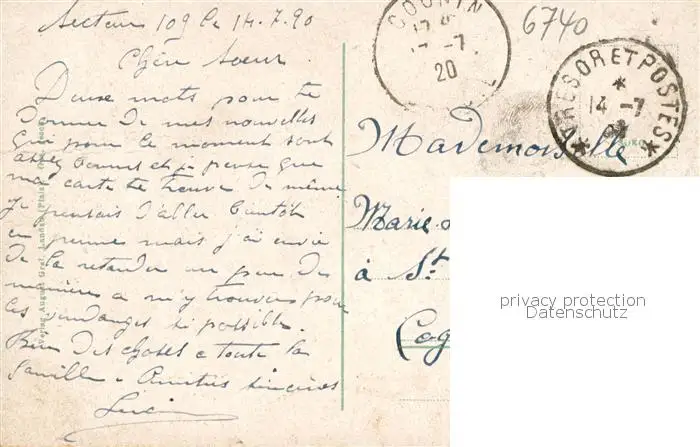 Secteur 109 le 14.7.20
Chère Soeur
Deux mots pour te
donner de mes nouvelles
qui pour le moment sont
assez bonnes et je pense que
ma carte te trouve de même
Je pensais d'aller bientôt
en perme mais j'ai envie
de la retarder un peu de
manière a m'y trouver pour
les vendanges si possible.
Bien des choses a toute la
famille. Amitiés sincères
Lucien
COGNIN
7
20
6740
TRESOR ET POSTES
14 -7
Mademoiselle
Marie
à St.
Cog
Verlag August Graf, Landau (Pfalz)
privacy protection
Datenschutz